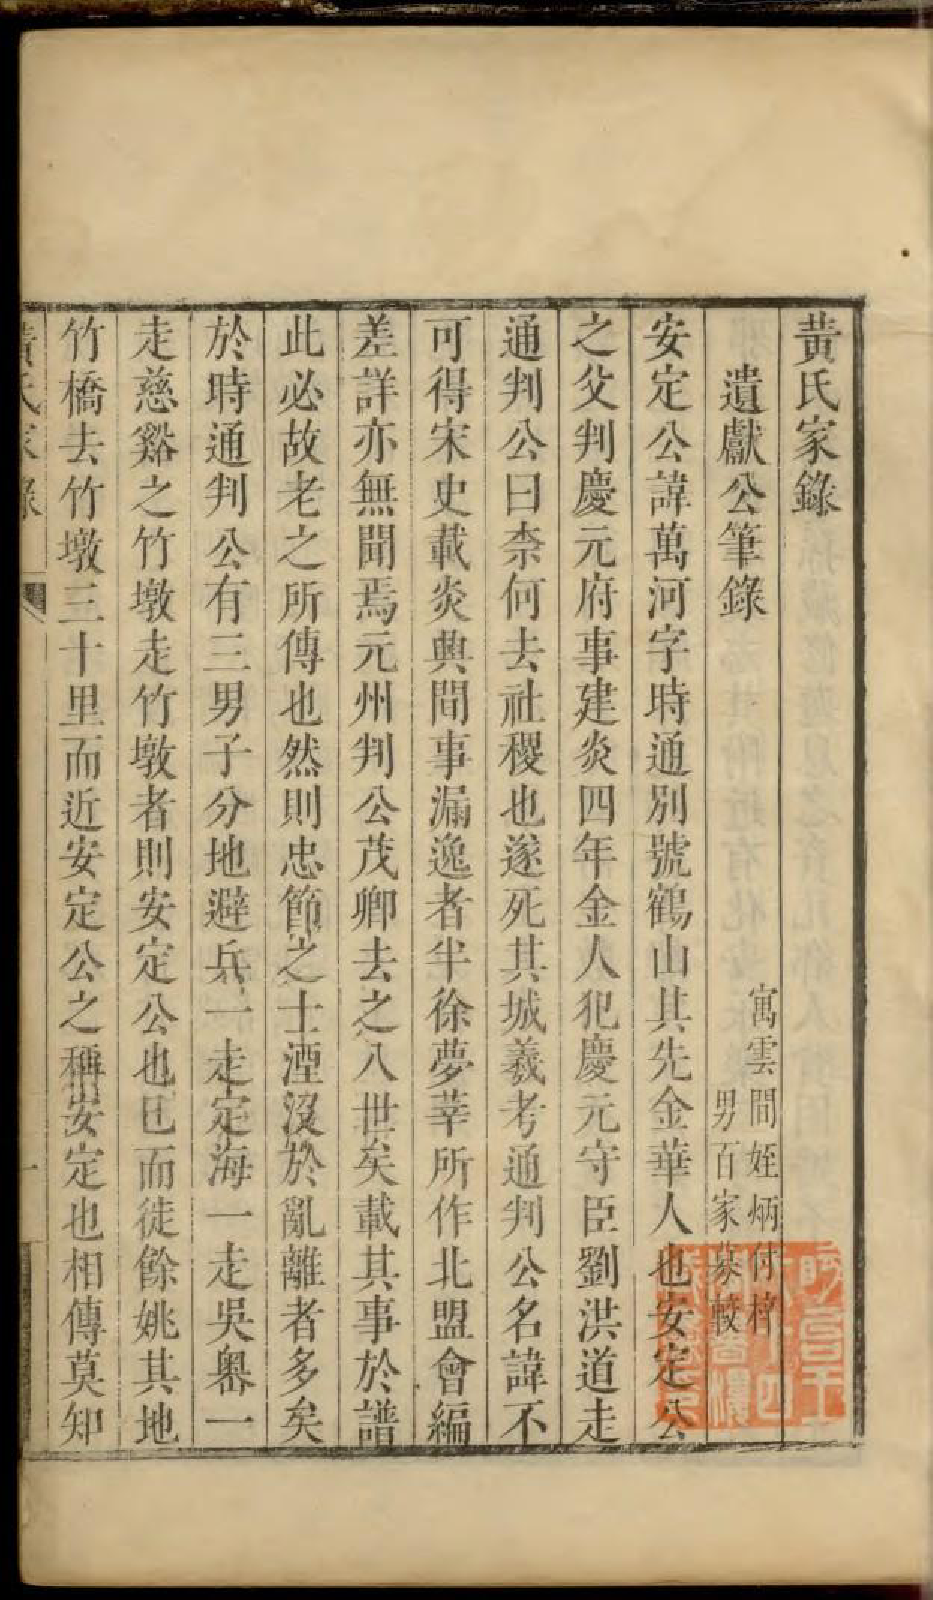 黃氏家錄
遺獻公筆錄
寓雲間姪炳付梓
男百家纂較
安定公諱萬河字時通別號鶴山其先金華人也安定公
之父判慶元府事建炎四年金人犯慶元守臣劉洪道走
通判公曰柰何去社稷也遂死其城羲考通判公名諱不
可得宋史載炎興間事漏逸者半徐夢莘所作北盟會編
差詳亦無聞焉元州判公茂卿去之入世矣載其事於譜
此必故老之所傳也然則忠節之士湮沒於亂離者多矣
於時通判公有三男子分地避兵一走定海一走吳嶴一
走慈谿之竹墩走竹墩者則安定公也已而徒餘姚其地
竹橋去竹墩三十里而近安定公之稱安定也相傳莫知
黃氏家錄
一